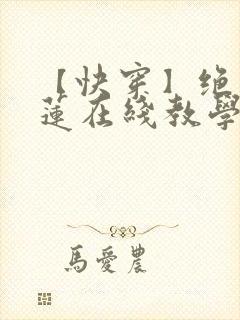 【快穿】绝
蓮在綫教學
馬愛農